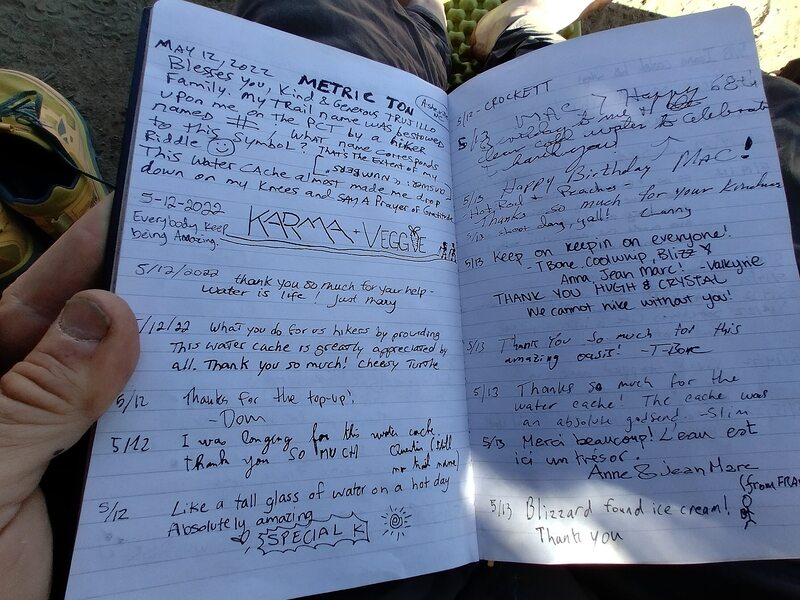 MAY 12, 2022
METRIC TON
Blesses you, Kind & Generous TRUJILLO
Family. My trail name was bestowed
upon me on the PCT by a hiker
named #, what name corresponds
to this symbol? That's the Extent of my
Riddle
This water cache almost made me drop
down on my knees and say a Prayer of Gratitude
5-12-2022
Everybody keep
being Amazing.
KARMA + VEGGIE
5/12/2022 thank you so much for your help -
water is life! Just Mary
5/12/22 What you do for us hikers by providing
This water cache is greatly appreciated by
all. Thank you so much! Cheesy Turtle
5/12 Thanks for the top-up!
- Dom
5/12 I was longing for this water cache
thank you SO MUCH Quentin (still
no trail name)
5/12 Like a tall glass of water on a hot day
Absolutely amazing
SPECIAL K
5/12 - CROCKETT
5/12 MAC Happy 68th
to me
clear cool water to celebrate
Thank you!
5/13 Happy Birthday MAC!
Hot Rod + Peaches
Thanks so much for your kindness
5/13 Shoot dang, yall! Channy
5/13 Keep on keepin on everyone!
- T Bone, Coolwhip, Blizz
Anna, Jean Marc! - Valkyrie
THANK YOU HUGH & CRYSTAL
We cannot hike without you!
5/13 Thank you so much for this
amazing oasis! - T-Bone
5/13 Thanks so much for the
water cache! The cache was
an absolute godsend. - Slim
5/13 Merci beaucoup! L'eau est
ici un trésor.
Anne & Jean Marc
(from FRA
5/13 Blizzard found ice cream!
Thank you